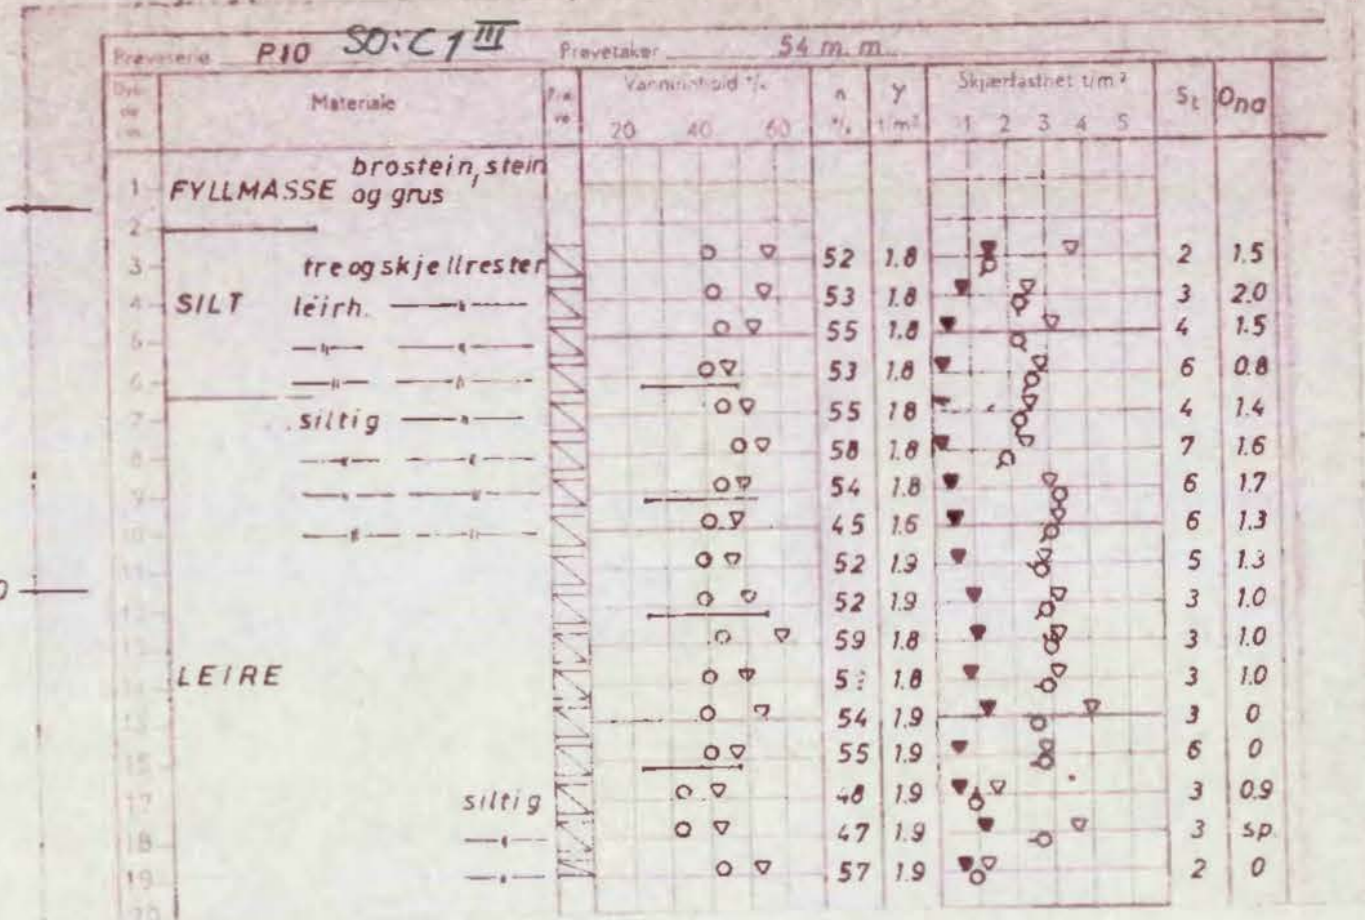 Prøveserie P10 SO:C1 III Prøvetaker 54 m.m.
Materiale Vanninnhold % n γ Skjærfasthet t/m² St Ona
20 40 60 % t/m³ 1 2 3 4 5
brostein, stein
1 FYLLMASSE og grus
2
3 tre og skjellrester 52 1.8 2 1.5
4 SILT leirh. —"— 53 1.8 3 2.0
5 —"— —"— 55 1.8 4 1.5
6 —"— —"— 53 1.8 6 0.8
7 siltig —"— 55 1.8 4 1.4
8 —"— —"— 58 1.8 7 1.6
9 —"— —"— 54 1.8 6 1.7
10 —"— —"— 45 1.6 6 1.3
11 52 1.9 5 1.3
12 52 1.9 3 1.0
13 59 1.8 3 1.0
14 LEIRE 1.8 3 1.0
15 54 1.9 3 0
55 1.9 6 0
17 siltig 48 1.9 3 0.9
18 —"— 47 1.9 3 sp.
19 —"— 57 1.9 2 0
20